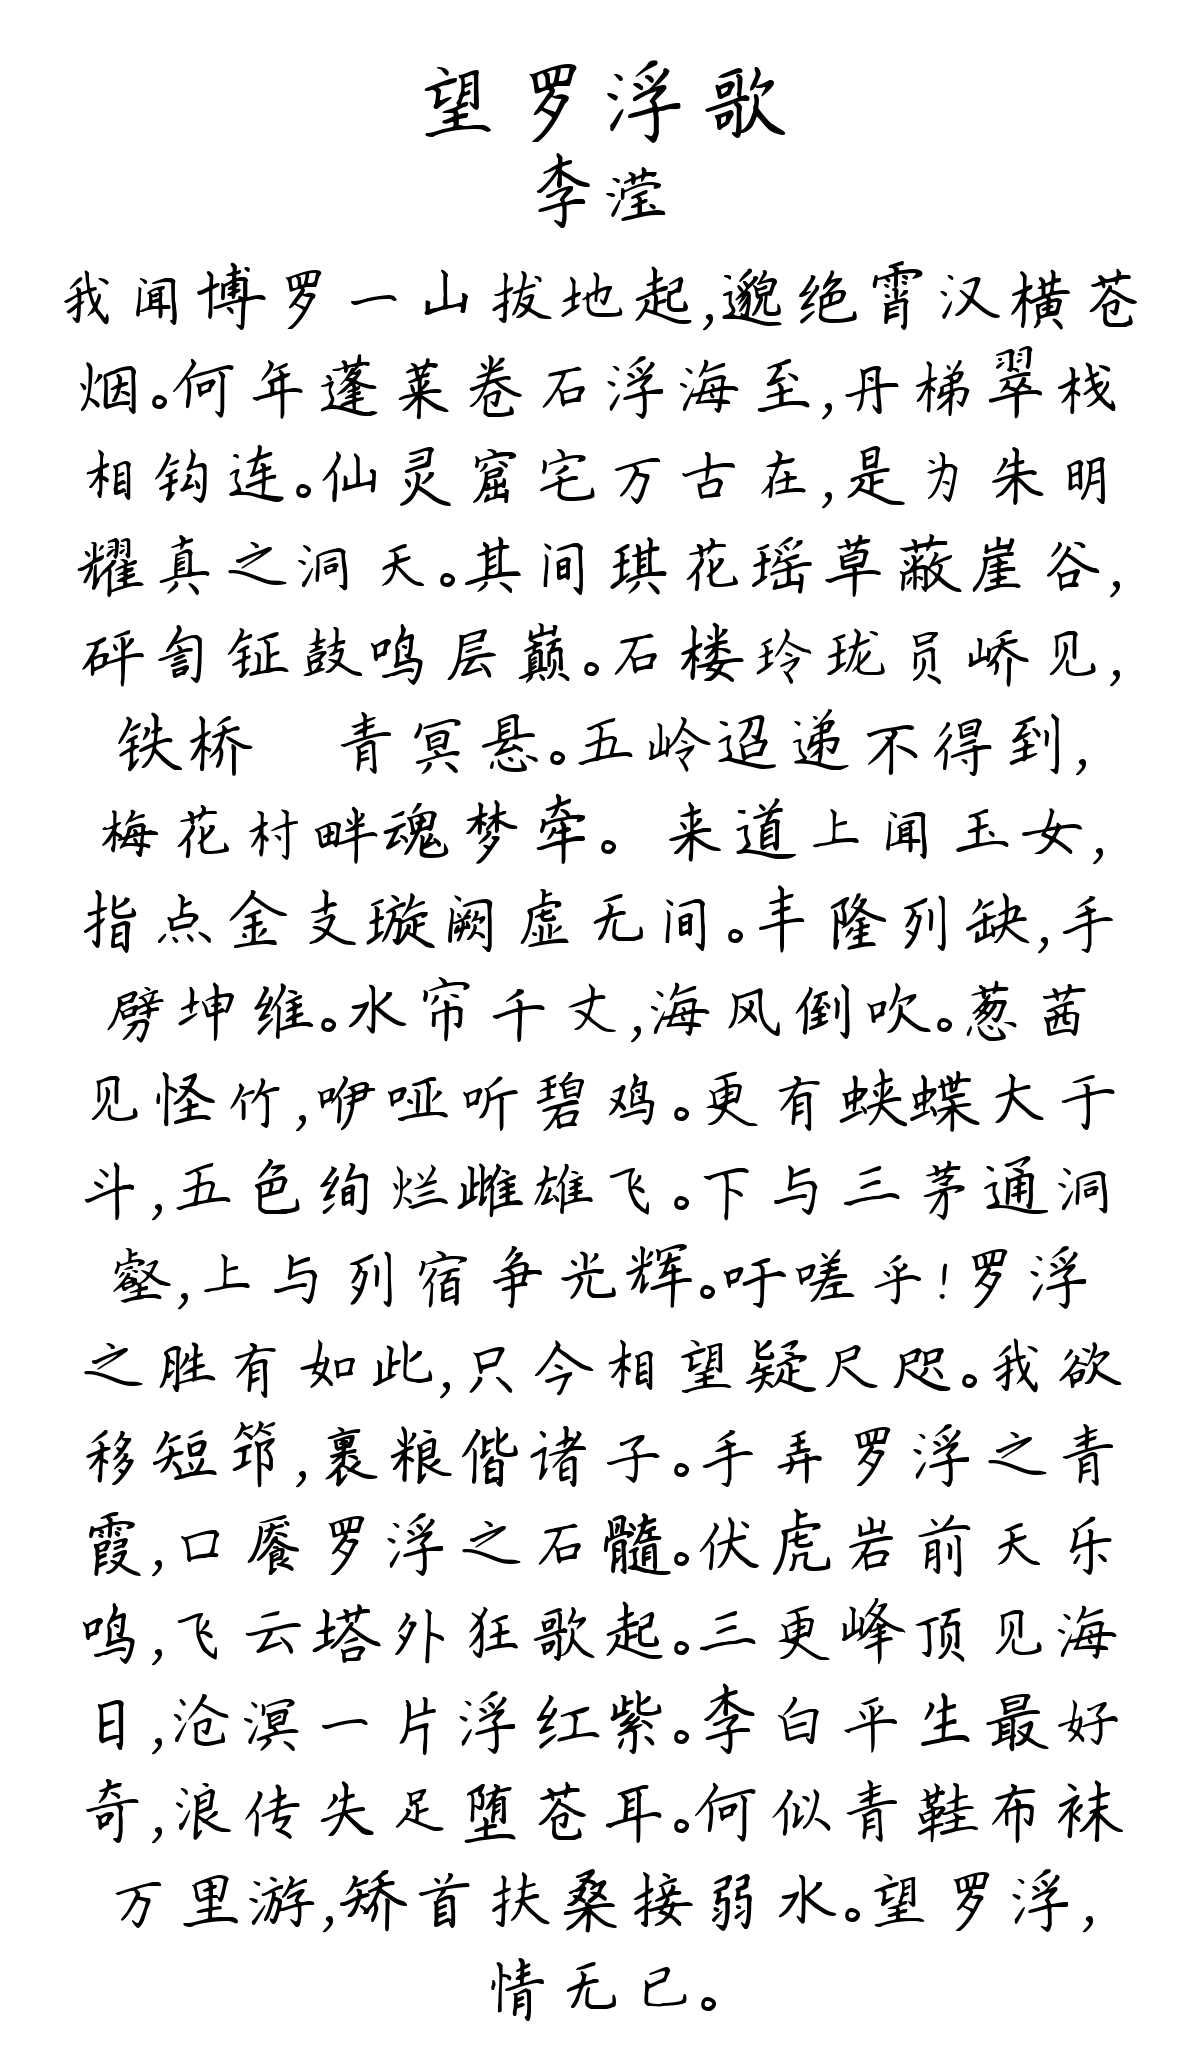 望罗浮歌
李滢
我闻博罗一山拔地起,邈绝霄汉横苍
烟。何年蓬莱卷石浮海至,丹梯翠栈
相钩连。仙灵窟宅万古在,是为朱明
耀真之洞天。其间琪花瑶草蔽崖谷,
砰訇钲鼓鸣层巅。石楼玲珑员峤见,
铁桥 青冥悬。五岭迢递不得到,
梅花村畔魂梦牵。 来道上闻玉女,
指点金支璇阙虚无间。丰隆列缺,手
劈坤维。水帘千丈,海风倒吹。葱茜
见怪竹,咿哑听碧鸡。更有蛱蝶大于
斗,五色绚烂雌雄飞。下与三茅通洞
壑,上与列宿争光辉。吁嗟乎!罗浮
之胜有如此,只今相望疑尺咫。我欲
移短筇,裹粮偕诸子。手弄罗浮之青
霞,口餍罗浮之石髓。伏虎岩前天乐
鸣,飞云塔外狂歌起。三更峰顶见海
日,沧溟一片浮红紫。李白平生最好
奇,浪传失足堕苍耳。何似青鞋布袜
万里游,矫首扶桑接弱水。望罗浮,
情无已。